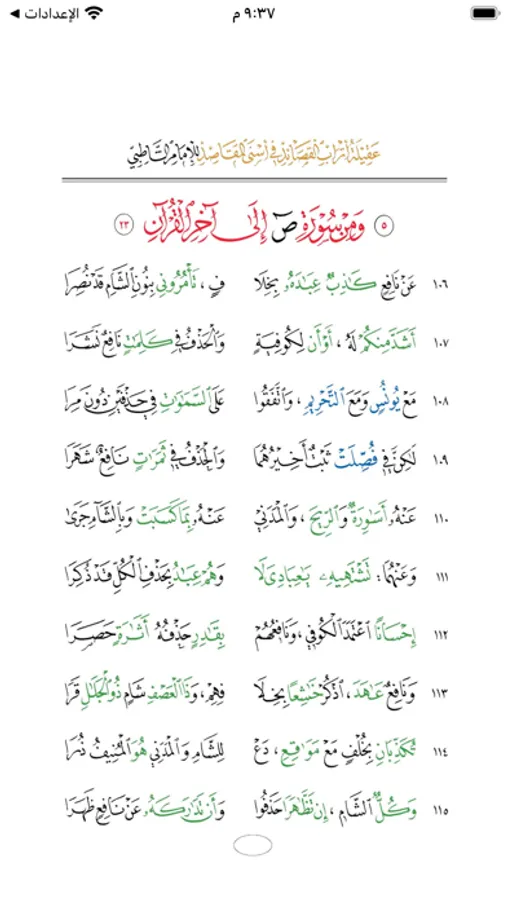 ٩:٣٧ م
الإعدادات ◀
عَقِيلَةُ أَتْرَابِ الْقَصَائِدِ فِي أَسْنَى الْمَقَاصِدِ لِلْإِمَامِ الشَّاطِبِيِّ
٥ وَمِنْ سُورَةِ صٓ إِلَىٰ آخِرِ الْقُرْآنِ ٢٣
١٠٦ عَنْ نَافِعٍ كَٰذِبٌ عِبَٰدَهُۥ بِخِلَا فٍ، تَأْمُرُونِي بِنُونِ الشَّامِ قَدْ نُصِرَا
١٠٧ أَشَدَّ مِنكُمْ لَهُ، أَوْ أَن لِكُوفِيَةٍ وَالْحَذْفُ فِي كَلِمَٰتُ نَافِعٌ نَشَرَا
١٠٨ مَعْ يُونُسٍ وَمَعَ التَّحْرِيمِ، وَاتَّفَقُوا عَلَى السَّمَٰوَٰتِ فِي حَذْفَيْنِ دُونَ مِرَا
١٠٩ لَكِنْ فِي فُصِّلَتْ ثَبْتٌ أَخِيرُهُمَا وَالْحَذْفُ فِي ثَمَرَٰتٍ نَافِعٌ شَهَرَا
١١٠ عَنْهُ أَسَٰوِرَةٌ وَالرِّيحَ، وَالْمَدَنِي عَنْهُ بِمَا كَسَبَتْ وَبِالشَّآمِ جَرَى
١١١ وَعَنْهُمَا: تَشْتَهِيهِۦ يَٰعِبَادِيَ لَا وَهُمْ عِبَٰدُ بِحَذْفِ الْكُلِّ قَدْ ذُكِرَا
١١٢ إِحْسَٰنًا اعْتَمَدَ الْكُوفِي، وَنَافِعُهُمْ بِقَٰدِرٍ حَذْفُهُ أَثَٰرَةٍ حَصَرَا
١١٣ وَنَافِعٌ عَٰهَدَ، اذْكُرْ خَٰشِعًا بِخِلَا فِهِمْ، وَذَا الْعَصْفِ شَامٍ ذُو الْجَلَٰلِ قَرَا
١١٤ تُكَذِّبَانِ بِخُلْفٍ مَعْ مَوَٰقِعِ، دَعْ لِلشَّامِ وَالْمَدَنِي هُوَ الْمُنِيفُ ذُرَا
١١٥ وَكُلٌّ الشَّامِ، إِن تَظَّٰهَرَا حَذَفُوا وَأَن تَدَٰرَكَهُۥ عَنْ نَافِعٍ ظَهَرَا